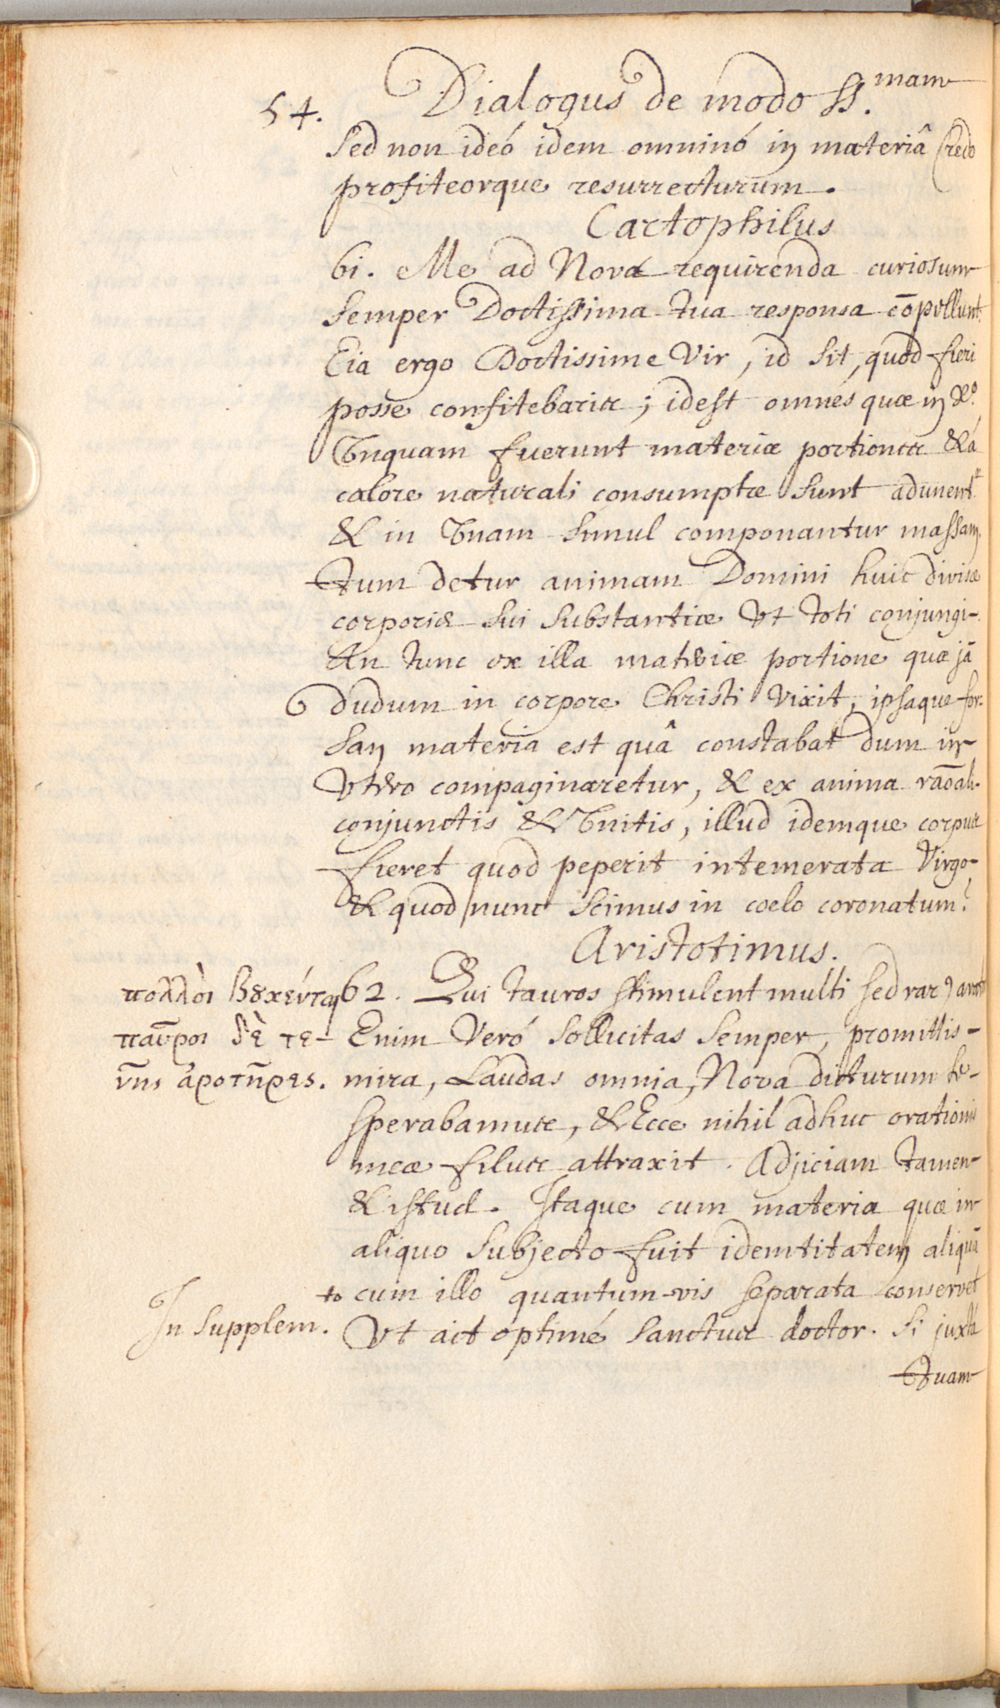 54. Dialogus de modo SS.mam
Sed non ideó idem omninó in materiâ Credo
profiteorque resurrecturum.
Cartophilus
61. Me ad Nova requirenda curiosum
Semper Doctissima tua responsa cōpellunt.
Eia ergo Doctissime Vir, id sit, quod fieri
posse confitebaris; idest omnes quæ in
Unquam fuerunt materiæ portiones & á
calore naturali consumptæ sunt adunent.r
& in Unam simul componantur massam,
tum detur animam Domini huic divisæ
corporis sui substantiæ Ut toti conjungi-
An tunc ex illa materiæ portione quæ jā
dudum in corpore Christi Vixit, ipsaque for-
san materia est quâ constabat dum in
Utero compaginaretur, & ex anima raōali
conjunctis & Unitis, illud idemque corpus
fieret quod peperit intemerata Virgo,
& quod nunc scimus in coelo coronatum?
Aristotimus.
πολλὸι βουκένται
παῦροι δὲ τε-
γῆς ἀροτῆρες.
62. Qui tauros stimulent multi sed rarꝰ arator
Enim Veró sollicitas semper, promittis
mira, Laudas omnia, Nova dicturum te
sperabamus, & Ecce nihil adhuc orationis
meæ filus attraxit. Adjiciam tamen
& istud. Itaque cum materia quæ in
aliquo subjecto fuit idemtitatem aliquā
to cum illo quantum-vis separata conservet
In Supplem.
Ut ait optimé Sanctus doctor. Si juxtá
tuam